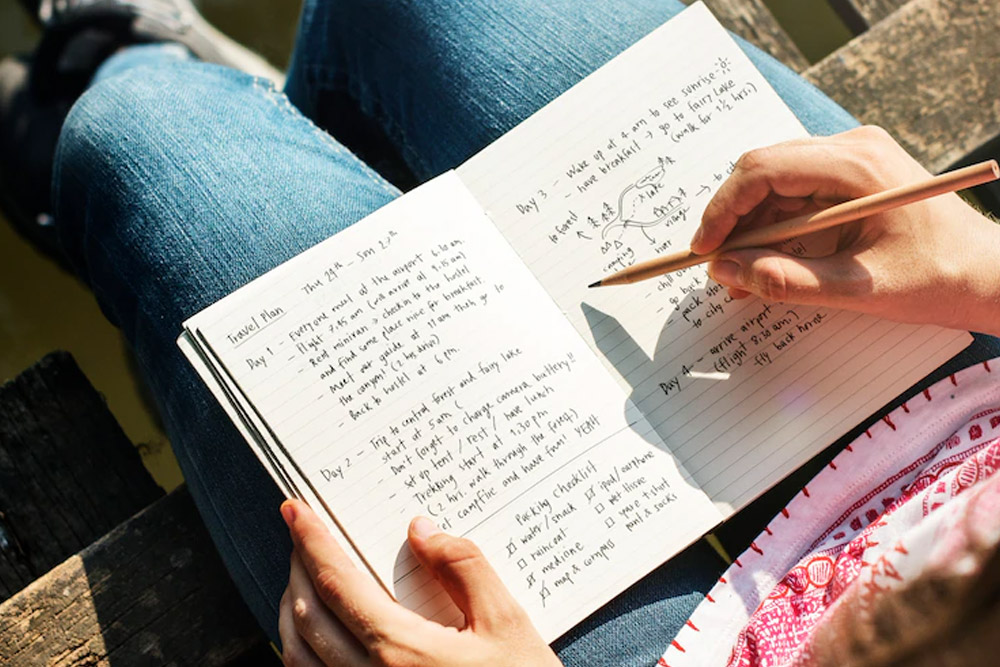 Travel Plan Thu 24th - Sun 27th
Day 1 - Everyone meet at the airport 6.30 am.
- flight 7.45 am (will arrive at 9.15 am)
- Rent minivan → checkin to the hostel
and find some place nice for breakfast.
- Meet our guide at 11 am then go to
the canyon! (2 hrs. drive)
- Back to hostel at 6 pm.
Day 2 - Trip to central forest and fairy lake
start at 5 am (
- Don't forget to charge camera battery!!
- set up tent / rest / have lunch
- Trekking start at 1.30 pm
(2 hr. walk through the forest)
- set campfire and have fun! YEAH
Packing checklist
water / snack
raincoat
medicine
map & compass
ipod / earphone
wet tissue
spare t-shirt
pant & socks
Day 3 - Wake up at 4 am to see sunrise
- have breakfast → go to fairy Lake
(walk for 1 1/2 hrs.)
to forest
lake
village
→ to ci
camping
- chill ou
go back
pack st
to city c
Day 4 - arrive airport
(flight 8.30 am.)
fly back home